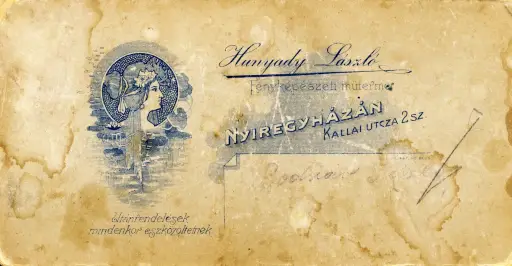 Hunyady László
Fényképészeti műterme
NYIREGYHÁZÁN
KÁLLAI UTCZA 2 SZ
utánrendelések
mindenkor eszközöltetnek